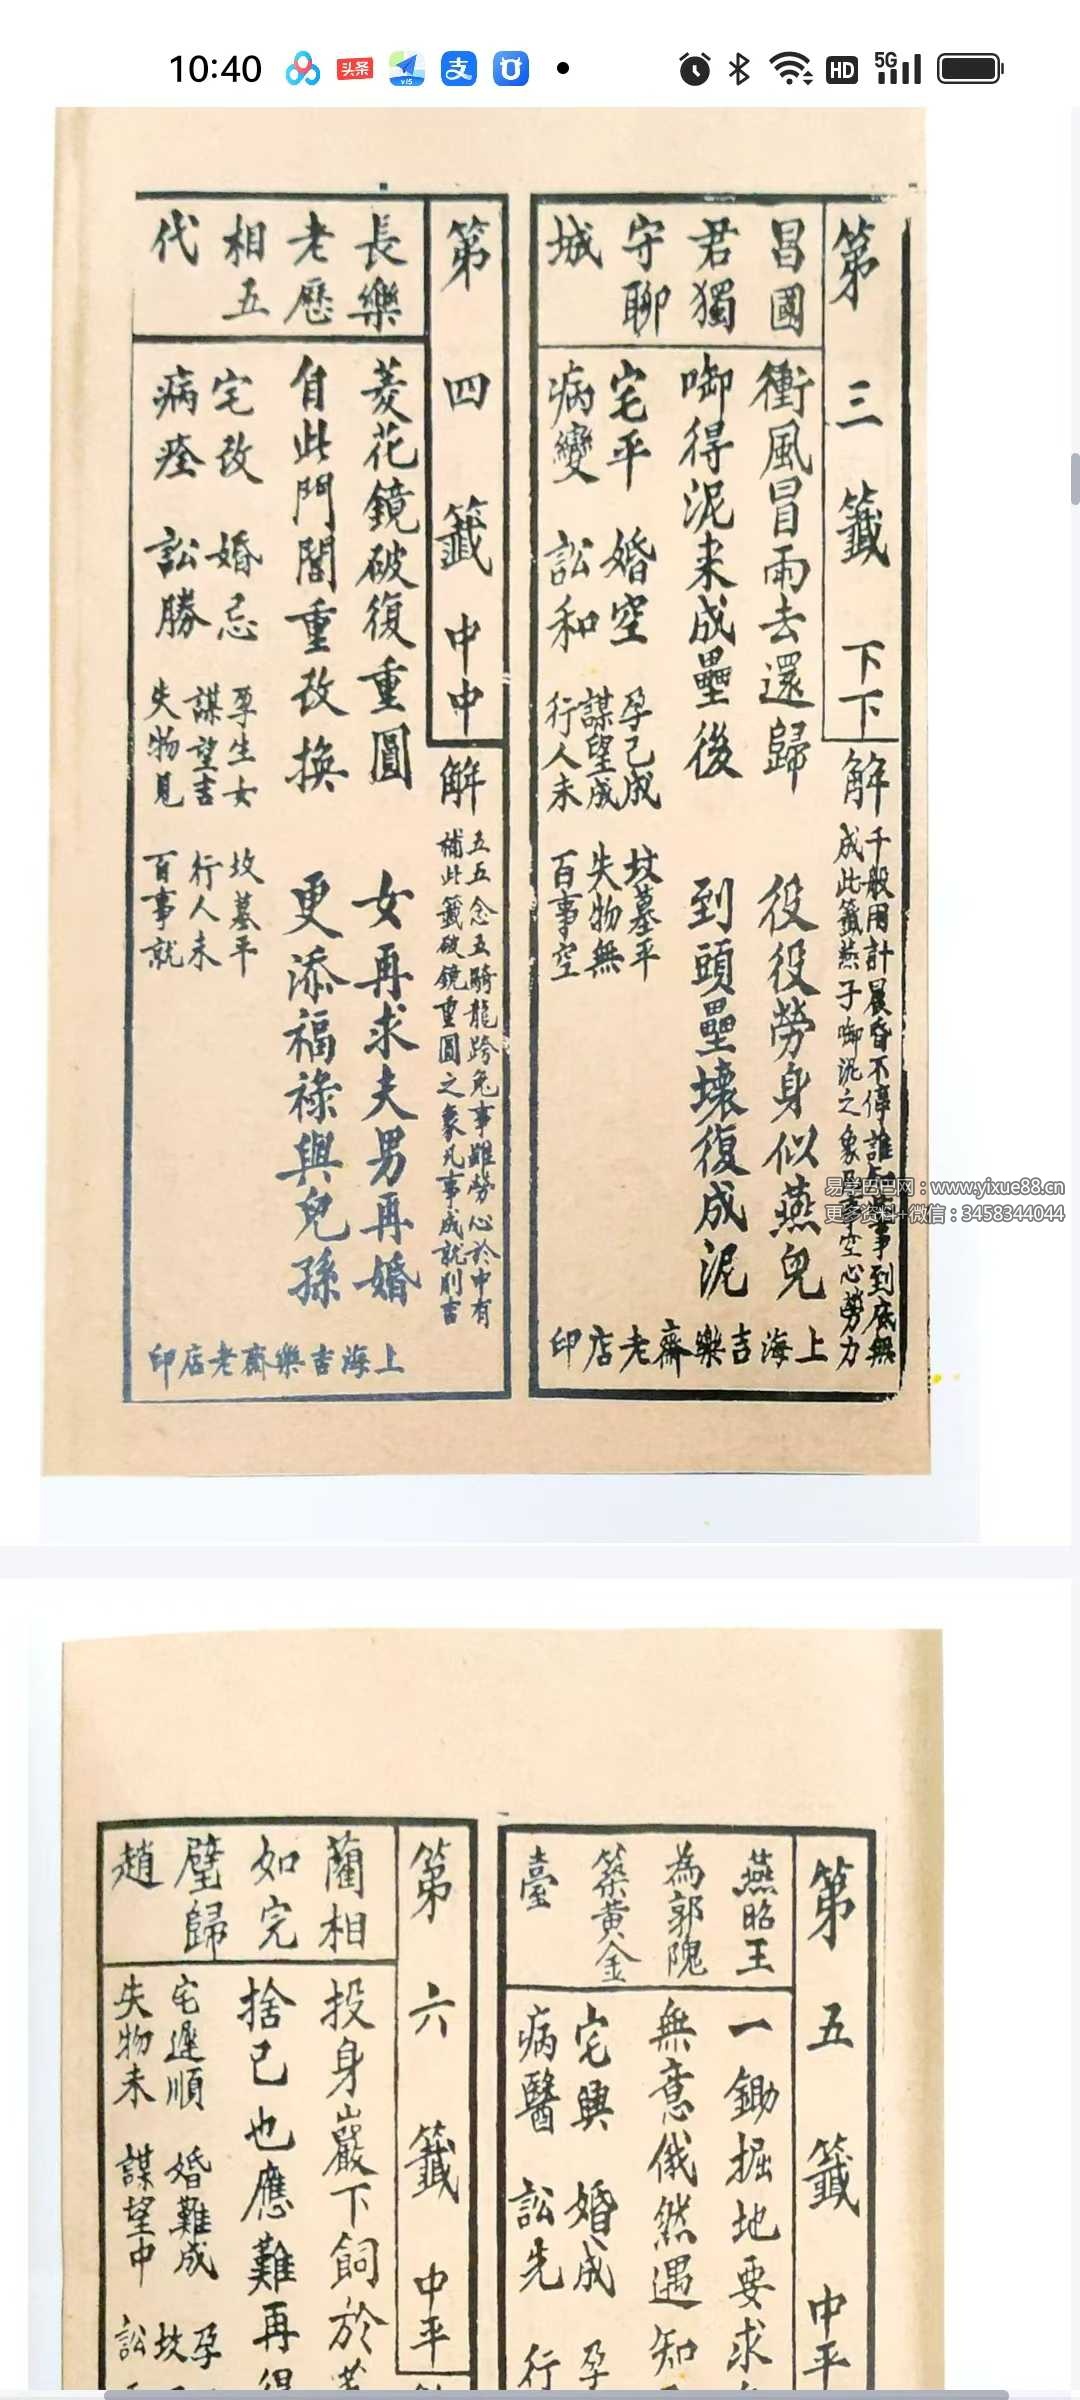 10:40
头条
HD
5G
第三籤 下下
解
千般用計晨昏不停誰知此事到底無
成此籤燕子啣泥之象凡事空心勞力
昌國
君獨
守聊
城
衝風冒雨去還歸 役役勞身似燕兒
啣得泥来成壘後 到頭壘壞復成泥
宅平 婚空 孕已成 坟墓平
謀望成 失物無
病變 訟和 行人未 百事空
上海吉樂齋老店印
第四籤 中中
解
五五念五騎龍跨兔事雖勞心於中有
補此籤破鏡重圓之象凡事成就則吉
長樂
老歷
相五
代
菱花鏡破復重圓 女再求夫男再婚
自此門閭重改換 更添福祿與兒孫
宅改 婚忌 孕生女 坟墓平
謀望吉 行人未
病痊 訟勝 失物見 百事就
上海吉樂齋老店印
易学巴巴网：www.yixue88.cn
更多资料+微信：3458344044
第五籤 中平
燕昭王
為郭隗
築黄金
臺
一鋤掘地要求
無意俄然遇知
宅興 婚成 孕
病醫 訟先 行
第六籤 中平
藺相
如完
璧歸
趙
投身巖下飼於
捨己也應難再得
宅遲順 婚難成 孕
坟
失物未 謀望中 訟